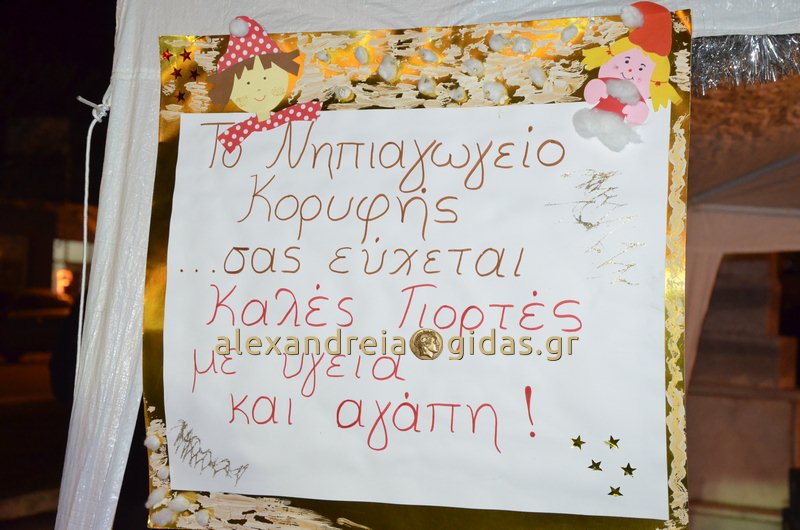 Το Νηπιαγωγείο
Κορυφής
...σας εύχεται
Καλές Γιορτές
alexandreia gidas.gr
με υγεία
και αγάπη!